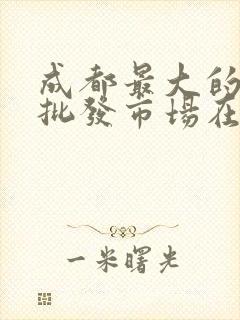 成都最大的
批發市場在
一米曙光